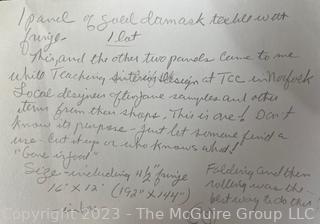 1 panel of gold damask textile with
fringe. 1 lot
This, and the other two panels came to me
while Teaching interior design at TCC in Norfolk
Local designers often gave samples and other
items from their shops. This is one! Don't
know its purpose - just let someone find a
use. Cut it up or who knows what!
"Gone is good"
Size - including 4½" fringe
16' x 12' (192" x 144")
Folding and then
rolling was the
best way to do this
Copyright 2023 - The McGuire Group, LLC